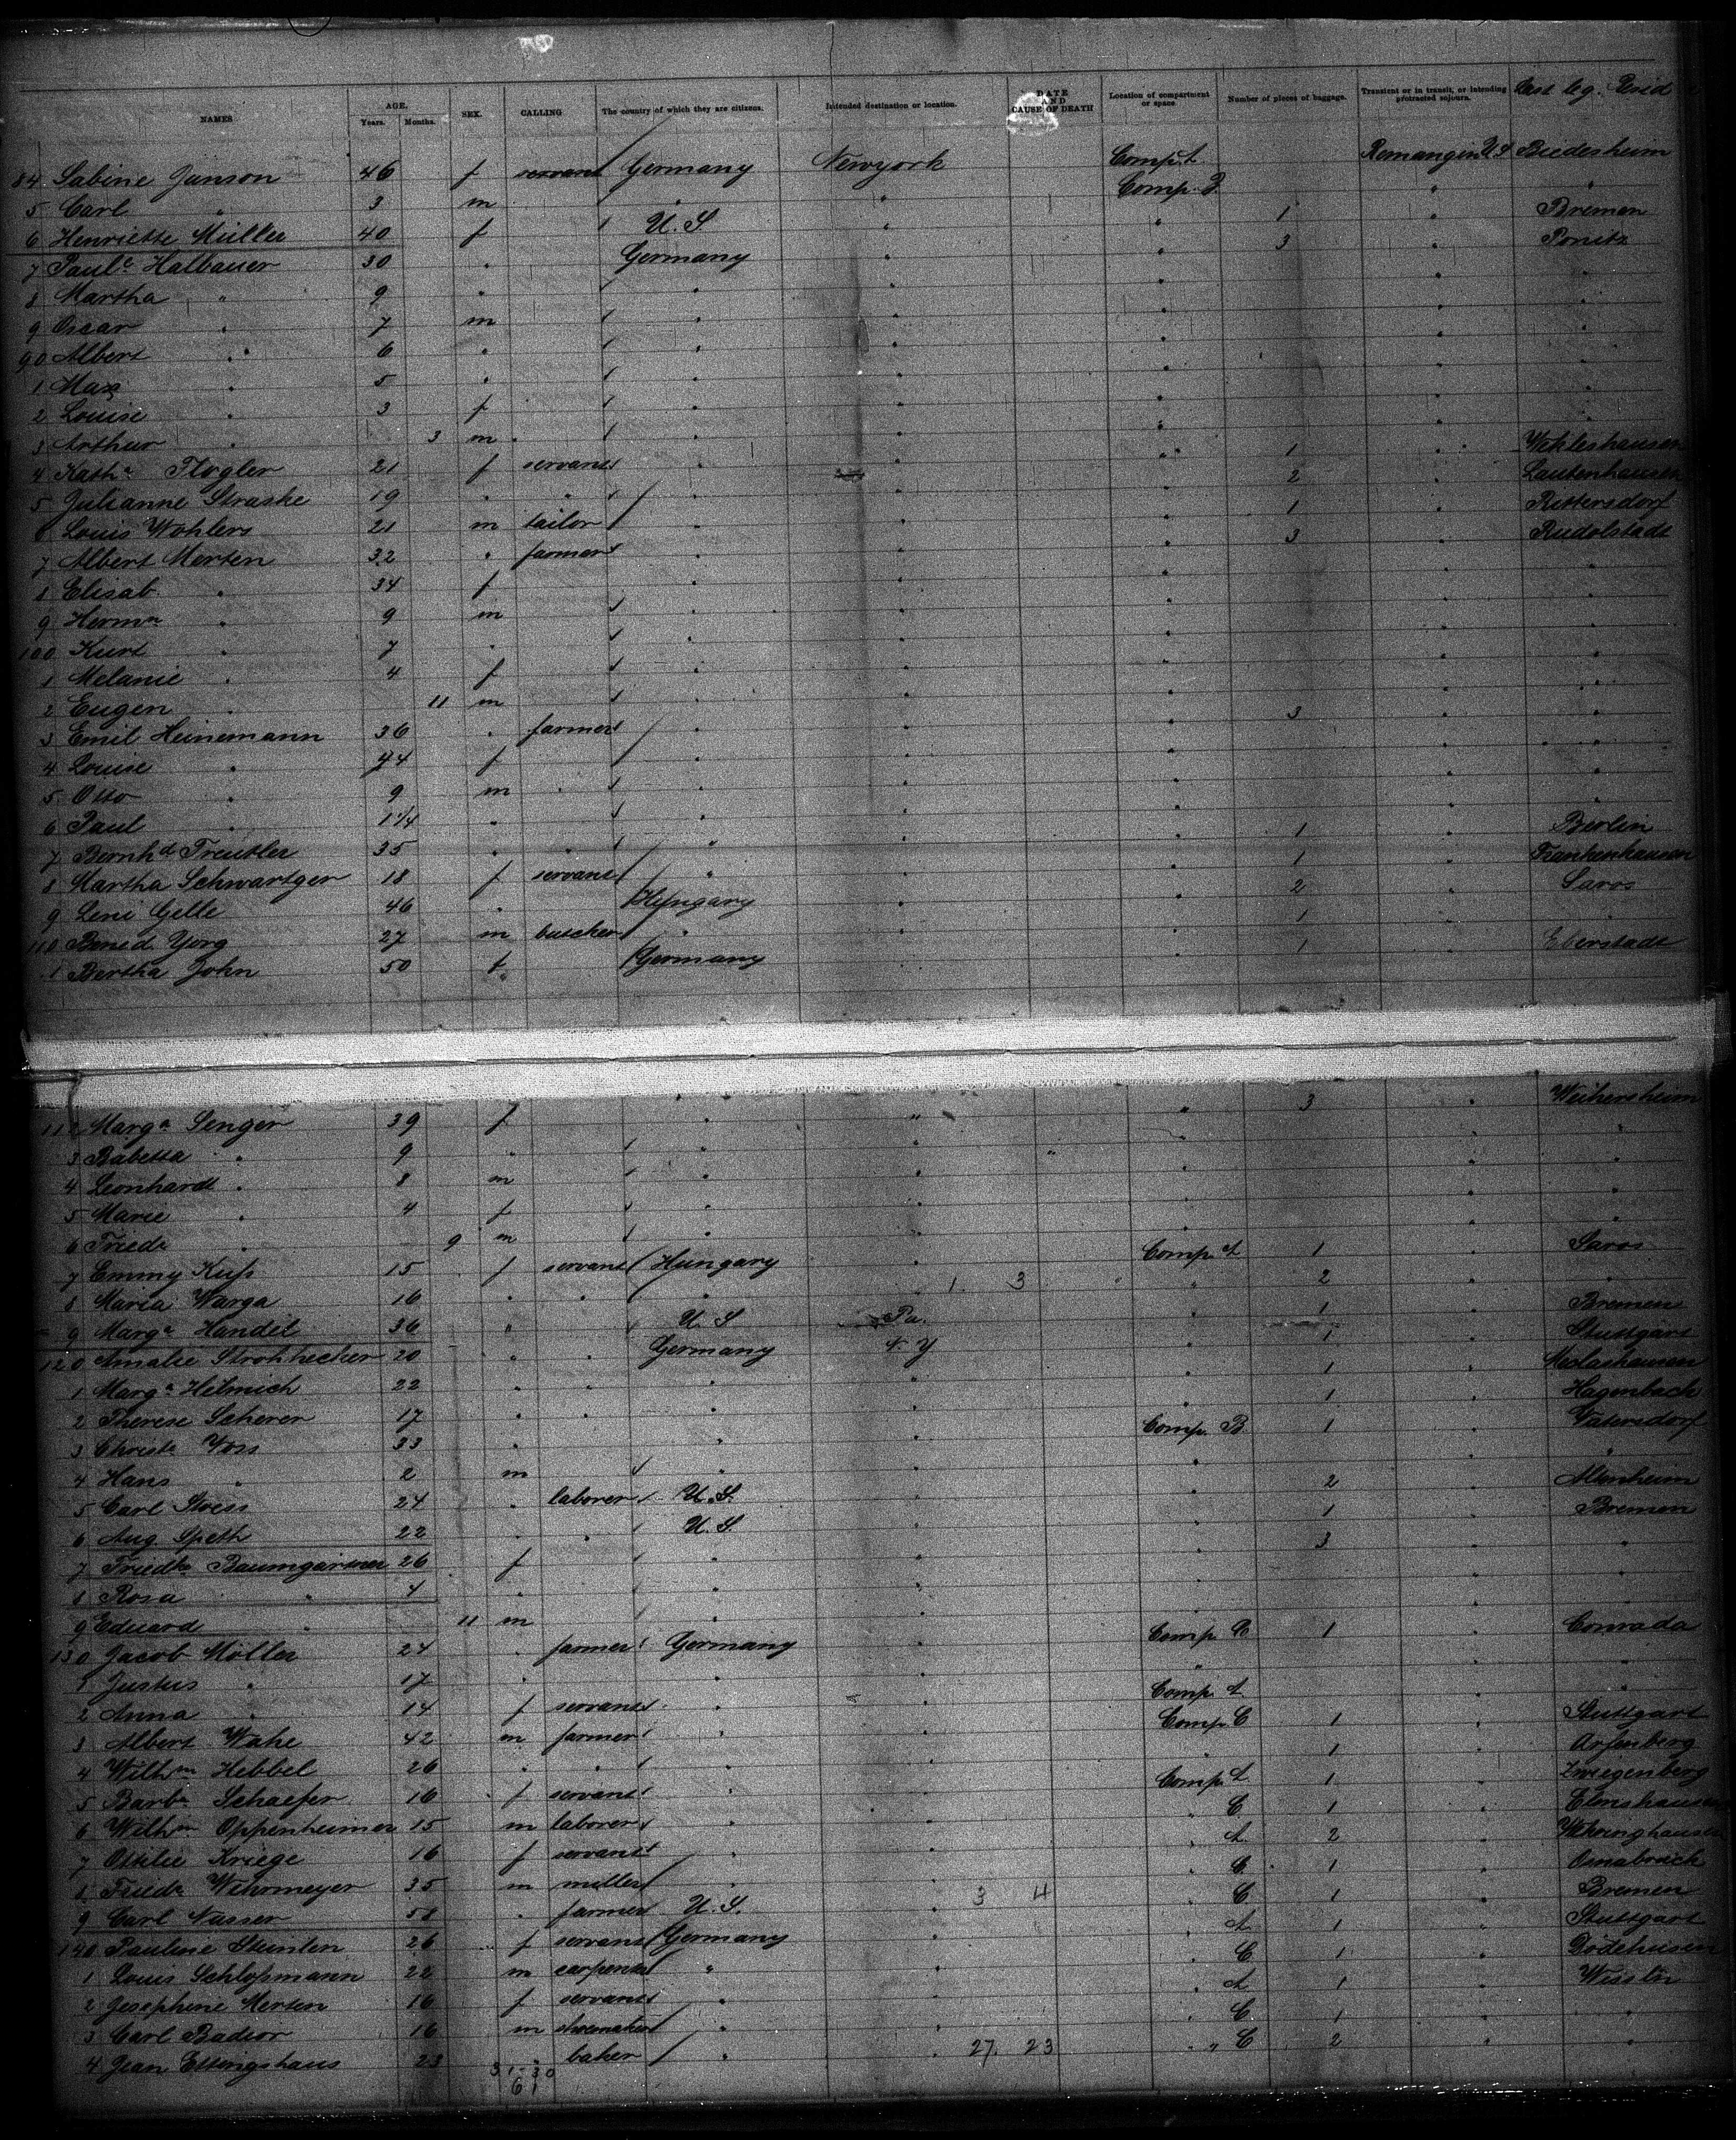 NAMES AGE. Years. Months. SEX. CALLING The country of which they are citizens. Intended destination or location. DATE AND CAUSE OF DEATH Location of compartment or space Number of pieces of baggage. Transient or in transit, or intending protracted sojourn. Last leg. Resid
84 Sabine Janson 46 f servant Germany Newyork Comp. A Biedesheim
5 Carl " 3 m " " Comp. " "
6 Henriette Müller 40 f U.S. " " 1 " Bremen
7 Paule Halbauer 30 " Germany " " 3 " Ponitz
8 Martha " 9 " " " " " "
9 Oscar " 7 m " " " " "
90 Albert " 6 " " " " " "
1 Max " 5 " " " " " "
2 Louise " 3 f " " " " "
3 Arthur " 3 m " " " " "
4 Katha Flogler 21 f servant " " " 1 "
5 Julianne Straske 19 " " " " " 2 " Lautenhausen
6 Louis Wohlers 21 m tailor " " " 1 " Rittersdorf
7 Albert Merten 32 " farmer " " " 3 " Rudolstadt
8 Elisab. " 34 f " " " " "
9 Hermn " 9 m " " " " "
100 Kurt " 7 " " " " " "
1 Melanie " 4 f " " " " "
2 Eugen " 11 m " " " " "
3 Emil Heinemann 36 " farmer " " " 3 " "
4 Louise " 44 f " " " " "
5 Otto " 9 m " " " " "
6 Paul " 1 1/4 " " " " " "
7 Bernhd Treutler 35 " " " " " 1 " Berlin
8 Martha Schwartger 18 f servant " " " 1 " Frankenhausen
9 Leni Gelle 46 " Hungary " " 2 " Saros
110 Bened Yorg 27 m butcher " " " 1 " "
1 Bertha John 50 f Germany " " 1 " Eberstadt
112 Marga Senger 39 f " " " 3 " Weihersheim
3 Babetta " 9 " " " " " "
4 Leonhard " 8 m " " " " "
5 Marie " 4 f " " " " "
6 Friedr " 9 m " " " " "
7 Emmy Kuss 15 f servant Hungary Comp A 1 " Saros
8 Maria Warga 16 " " " 1. 3 " 2 " "
9 Marga Handel 36 " U.S Pa. " 1 " Bremen
120 Amalie Strohhecker 20 " " Germany N. Y " 1 " Stuttgart
1 Marga Helmich 22 " " " " " 1 "
2 Therese Scherer 17 " " " " " 1 " Hagenbach
3 Christe Voss 33 " " " Comp. B 1 " Vatersdorf
4 Hans " 2 m " " " " "
5 Carl Stoess 24 " laborer U.S. " " 2 "
6 Aug. Speth 22 " " U.S. " " 1 " Bremen
7 Friedke Baumgartner 26 f " " " 3 " "
8 Rosa " 4 " " " " " "
9 Eduard " 11 m " " " " "
130 Jacob Möller 24 " farmer Germany " Comp. C 1 " Conrada
1 Justus " 17 " " " " " "
2 Anna " 14 f servant " " Comp. A " "
3 Albert Wahe 42 m farmer " " Comp. C 1 " Stuttgart
4 Wilhm Hebbel 26 " " " " " 1 "
5 Barba Schaefer 16 f servant " " Comp. A 1 " Zwiegenberg
6 Wilhm Oppenheimer 15 m laborer " " " C 1 "
7 Ottilie Kriege 16 f servant " " " A. 2 "
8 Friedr Wehrmeyer 35 m miller " " " C. 1 " Osnabrück
9 Carl Nusser 58 " farmer U.S. " 3 4 " C 1 " Bremen
140 Pauline Steinlen 26 f servant Germany " " A 1 " Stuttgart
1 Louis Schlossmann 22 m carpenter " " " C 1 "
2 Josephine Merten 16 f servant " " " A 1 "
3 Carl Badior 16 m shoemaker " " " C 1 " "
4 Jean Ettingshaus 23 " baker " " 27. 23 " C 2 " "
31 - 30
61